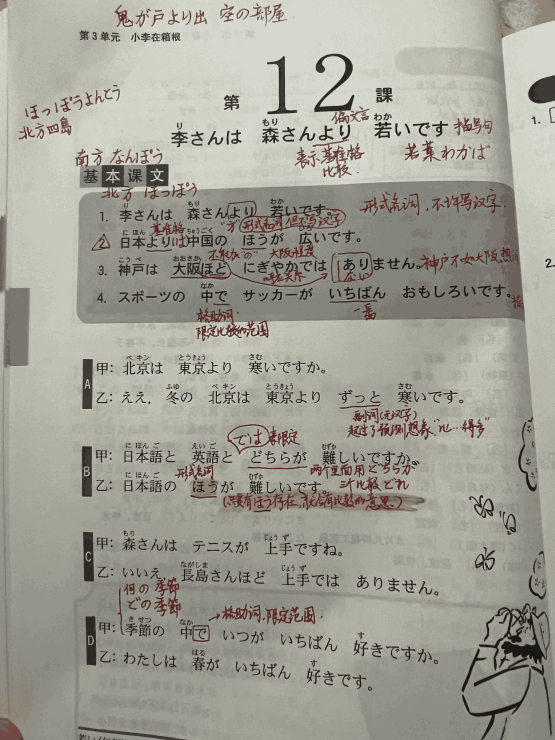 鬼が戸より出 空の部屋
第3单元 小李在箱根
第 12 課
ほっぽうよんとう
北方四島
李さんは 森さんより 若いです
偏文言
描写句
表示基准格
比较
若葉わかば
南方 なんぽう
基本课文
北方 ほっぽう
1. 李さんは 森さんより 若いです。
形式名词,不能写汉字
基准格
"方"形式名词但不写汉字
2. 日本より 中国の ほうが 広いです。
大阪程度
3. 神戸は 大阪ほど にぎやかでは ありません。
ない
神戸不如大阪热闹
4. スポーツの 中で サッカーが いちばん おもしろいです。
格助词
限定比较的范围
一番
A
甲: 北京は 東京より 寒いですか。
乙: ええ, 冬の 北京は 東京より ずっと 寒いです。
副词(无汉字)
超过了预测想象"比…得多"
では 表限定
B
甲: 日本語と 英語と どちらが 難しいですか。
形式名词
两个里面用どちらが
乙: 日本語の ほうが 難しいです。
三个比较どれ
(只要有ほう存在,就会有比较的意思)
C
甲: 森さんは テニスが 上手ですね。
乙: いいえ, 長島さんほど 上手では ありません。
何の季節
どの季節
格助词,限定范围
D
甲: 季節の 中で いつが いちばん 好きですか。
乙: わたしは 春が いちばん 好きです。